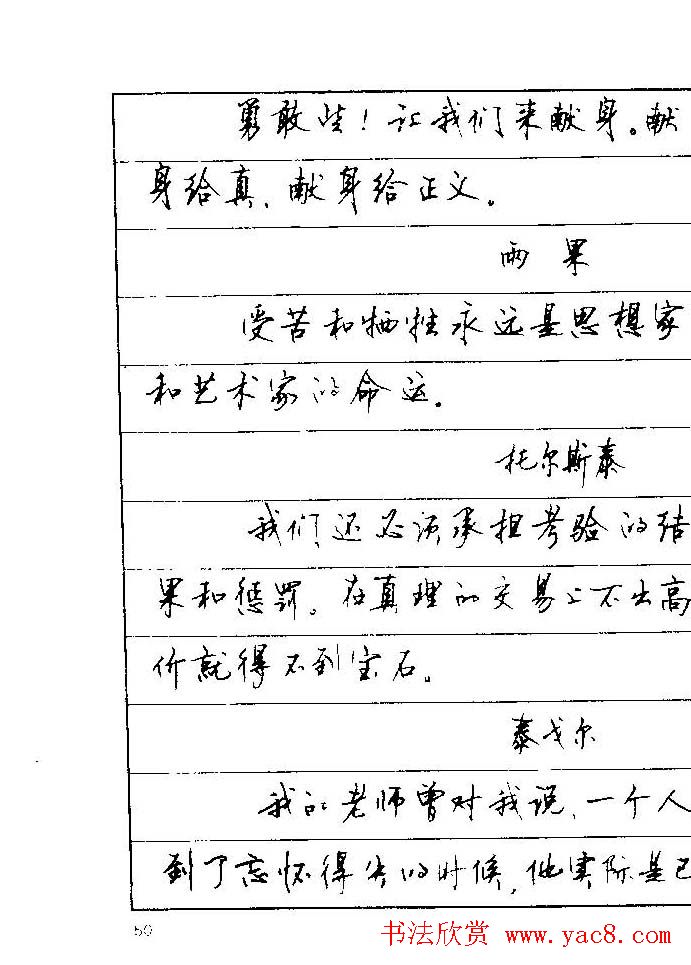 勇敢些！让我们来献身。献
身给真、献身给正义。
雨果
受苦和牺牲永远是思想家
和艺术家的命运。
托尔斯泰
我们还必须承担考验的结
果和惩罚。在真理的交易上不出高
价就得不到宝石。
泰戈尔
我的老师曾对我说、一个人
到了忘怀得失的时候，他实际是已
50
书法欣赏 www.yac8.com